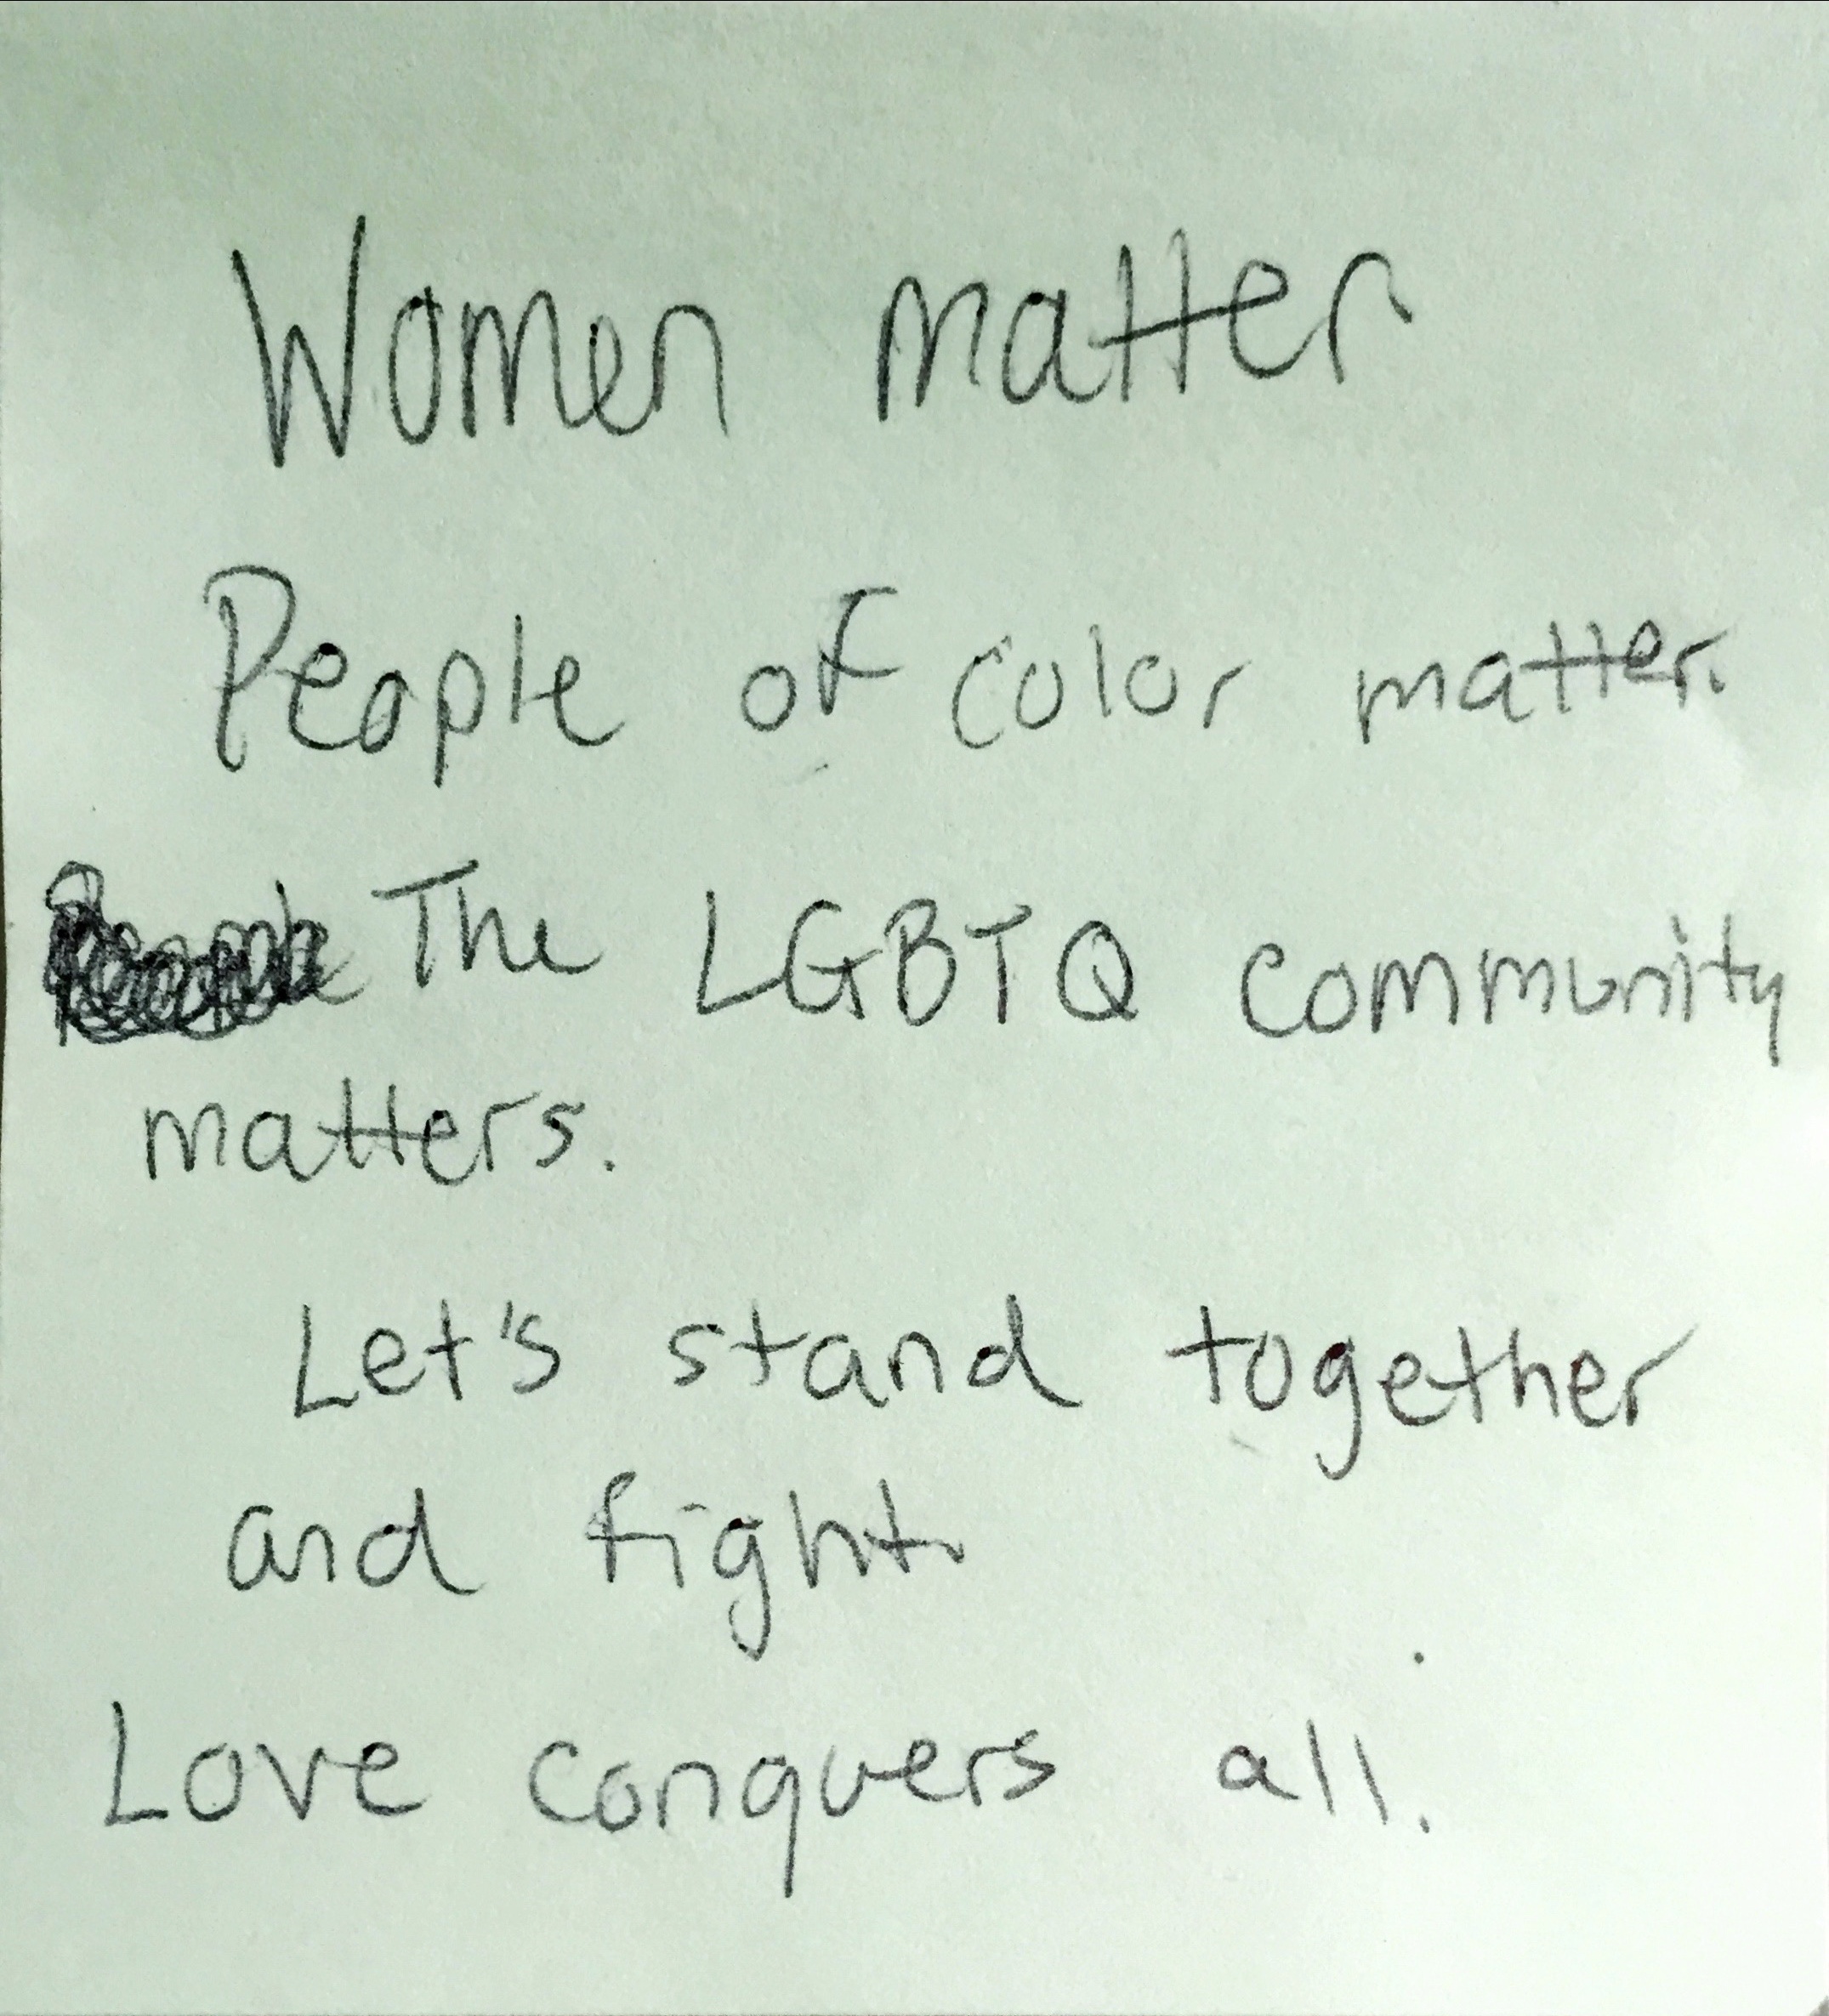 Women matter
People of color matter.
The LGBTQ community
matters.
Let's stand together
and fight.
Love conquers all.